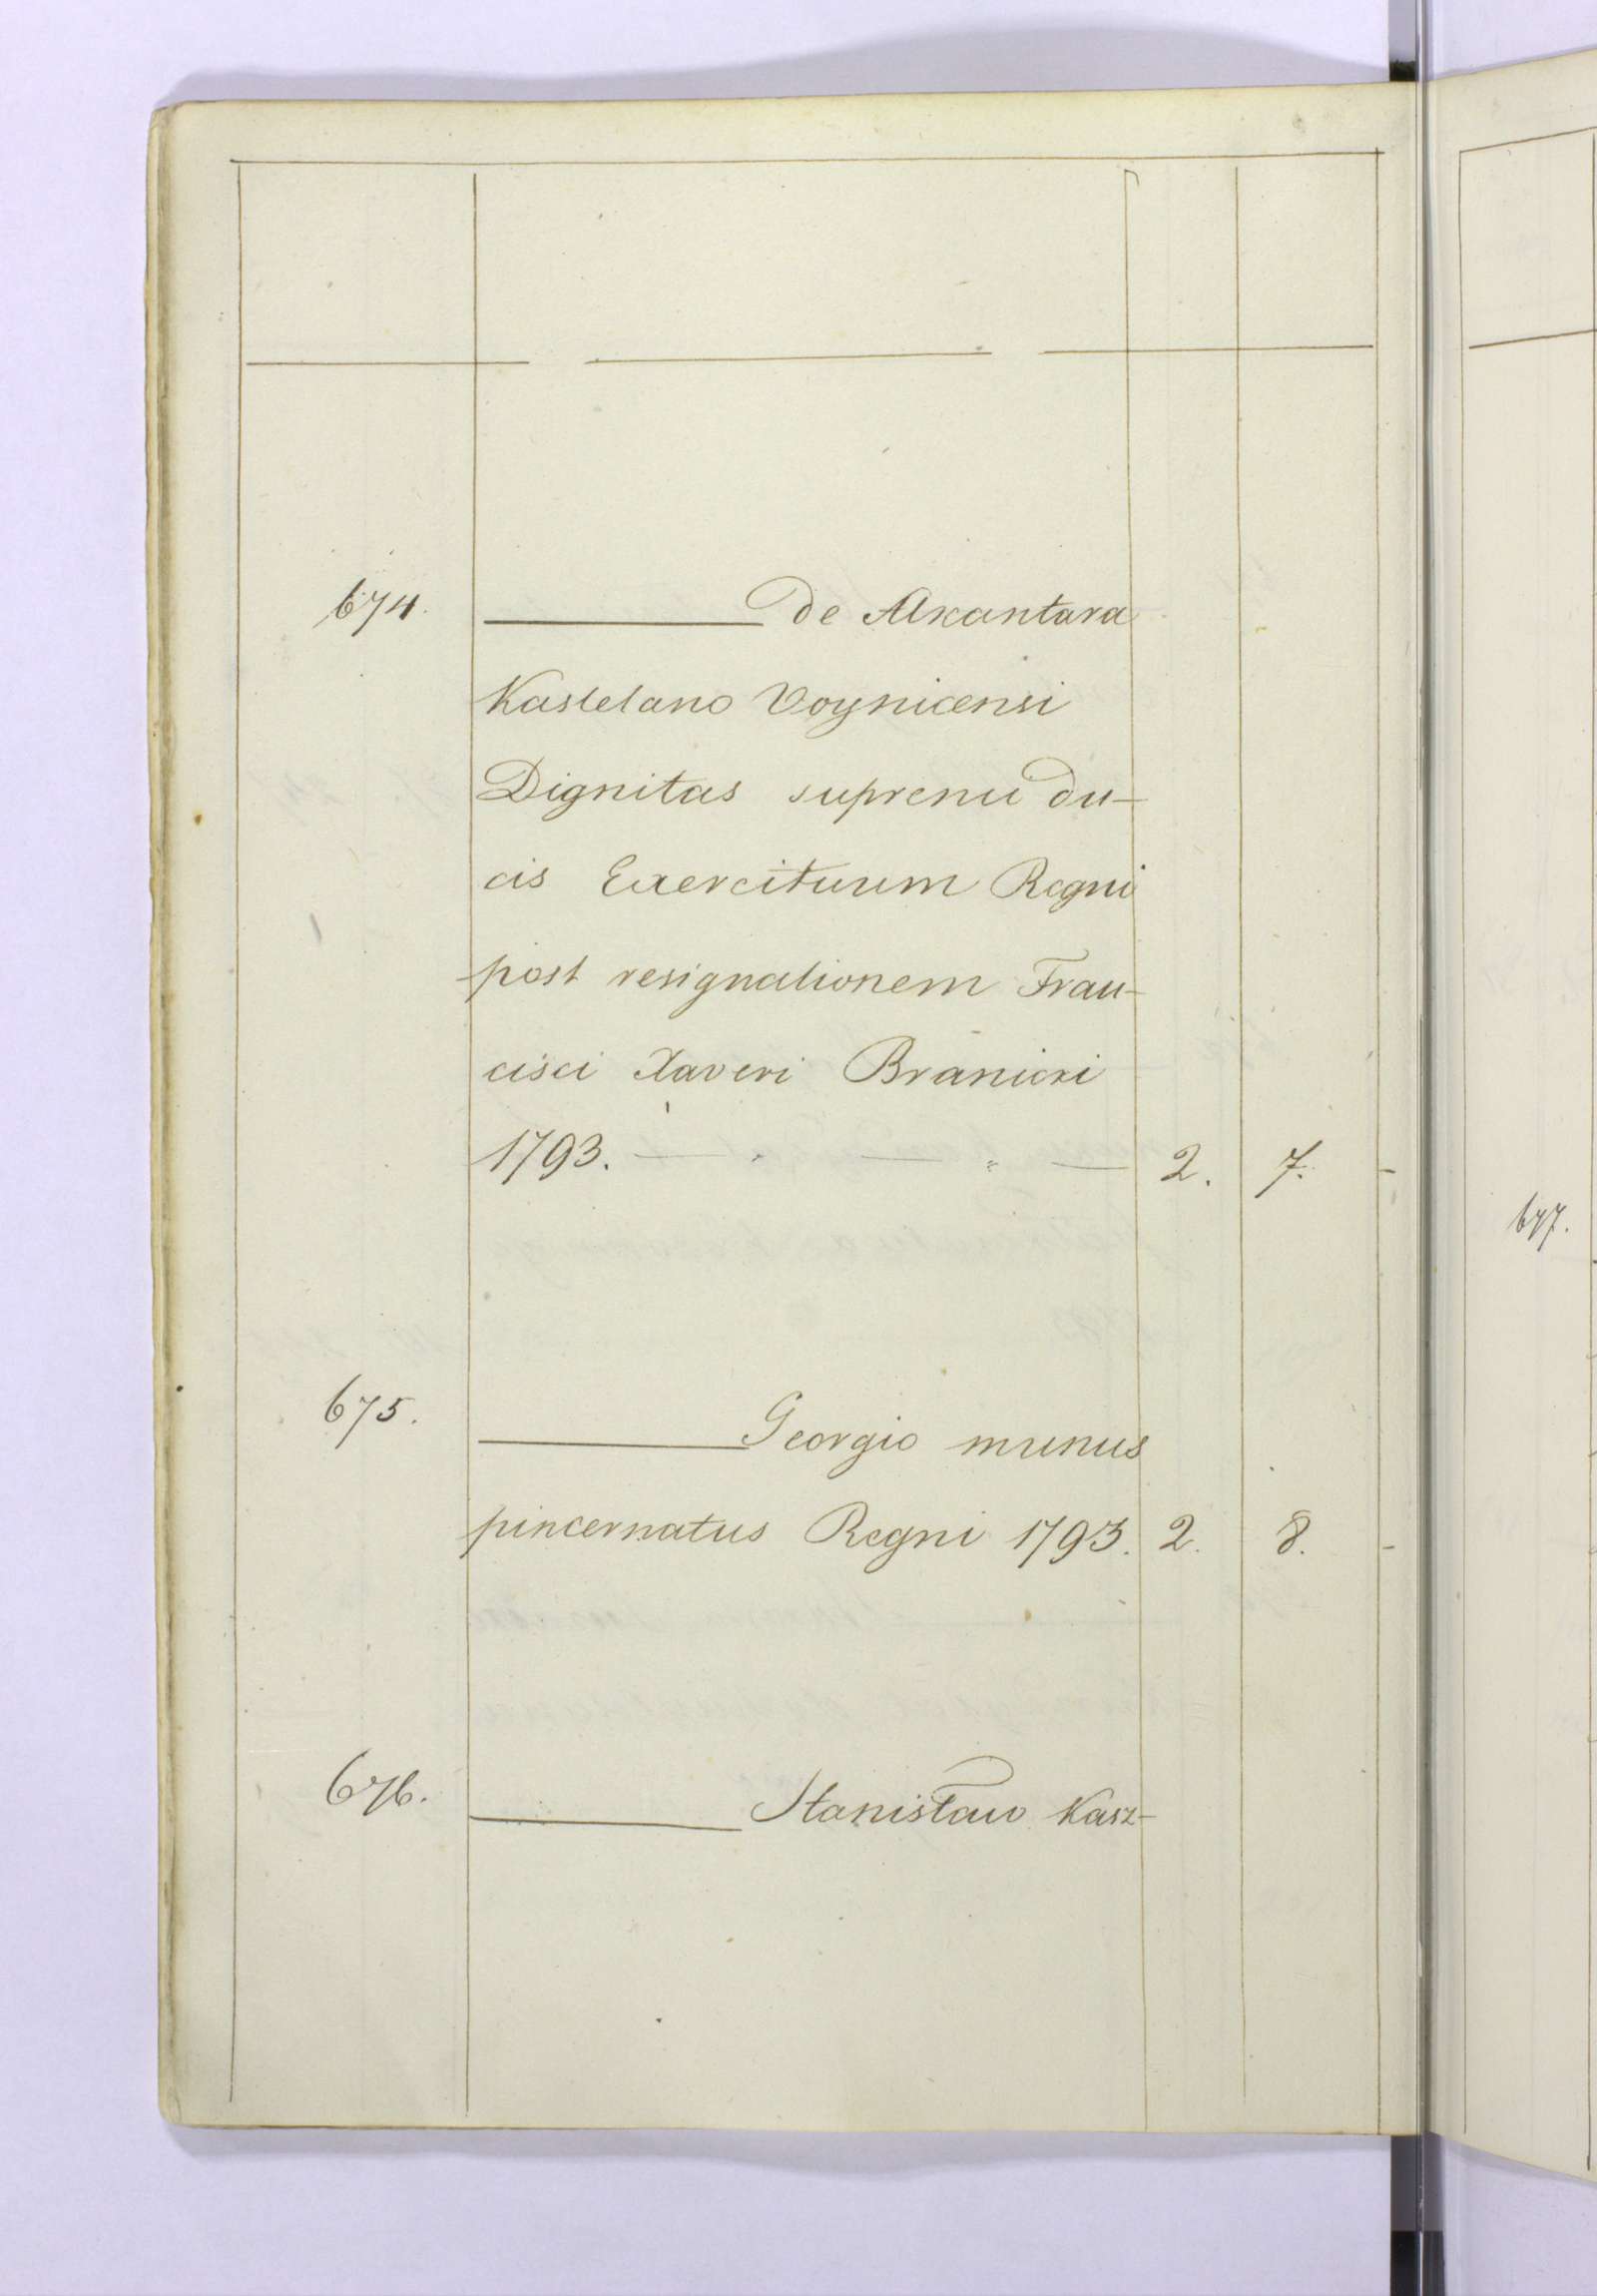 674. ——— de Alkantara
Kastelano Voynicensi
Dignitas supremi du-
cis Exercituum Regni
post resignationem Fran-
cisci Xaveri Branicki
1793. — " — " — 2. 7. -
675. ——— Georgio munus
pincernatus Regni 1793. 2. 8. -
676. ——— Stanisław Kasz-
677.